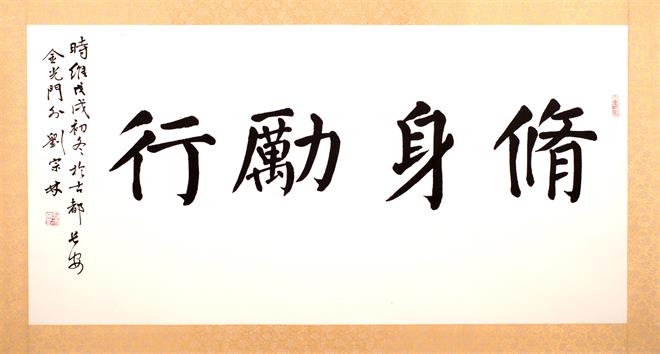 脩身勵行
時維戊戌初冬於古都長安
金光門外劉宗林